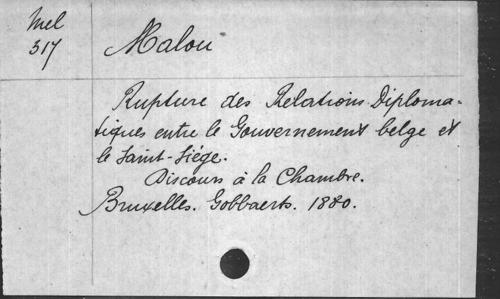 Mel
517
Malou
Rupture des Relations Diploma-
tiques entre le Gouvernement belge et
le Saint-Siége.
Discours à la Chambre.
Bruxelles. Gobbaerts. 1880.